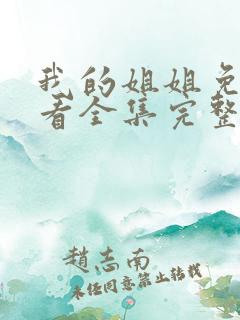 我的姐姐免
看全集完整
趙志南
未经同意禁止转载